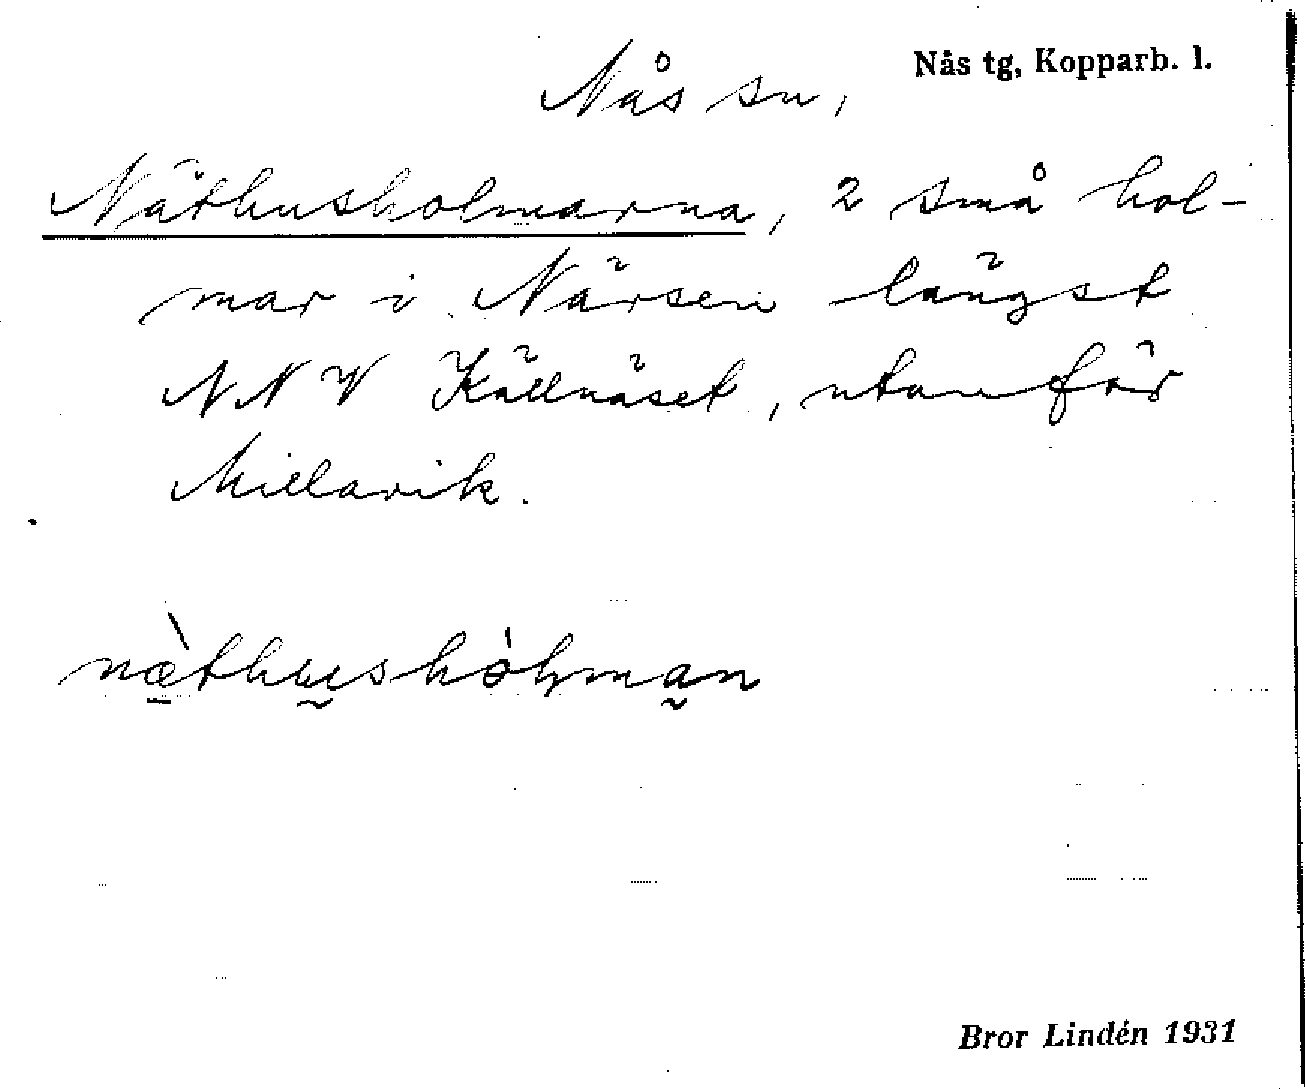 Nås tg, Kopparb. l.
Nås sn,
Näthusholmarna, 2 små hol-
mar i Närsen längst
NNV Källnäset, utanför
Millavik.
Bror Lindén 1931